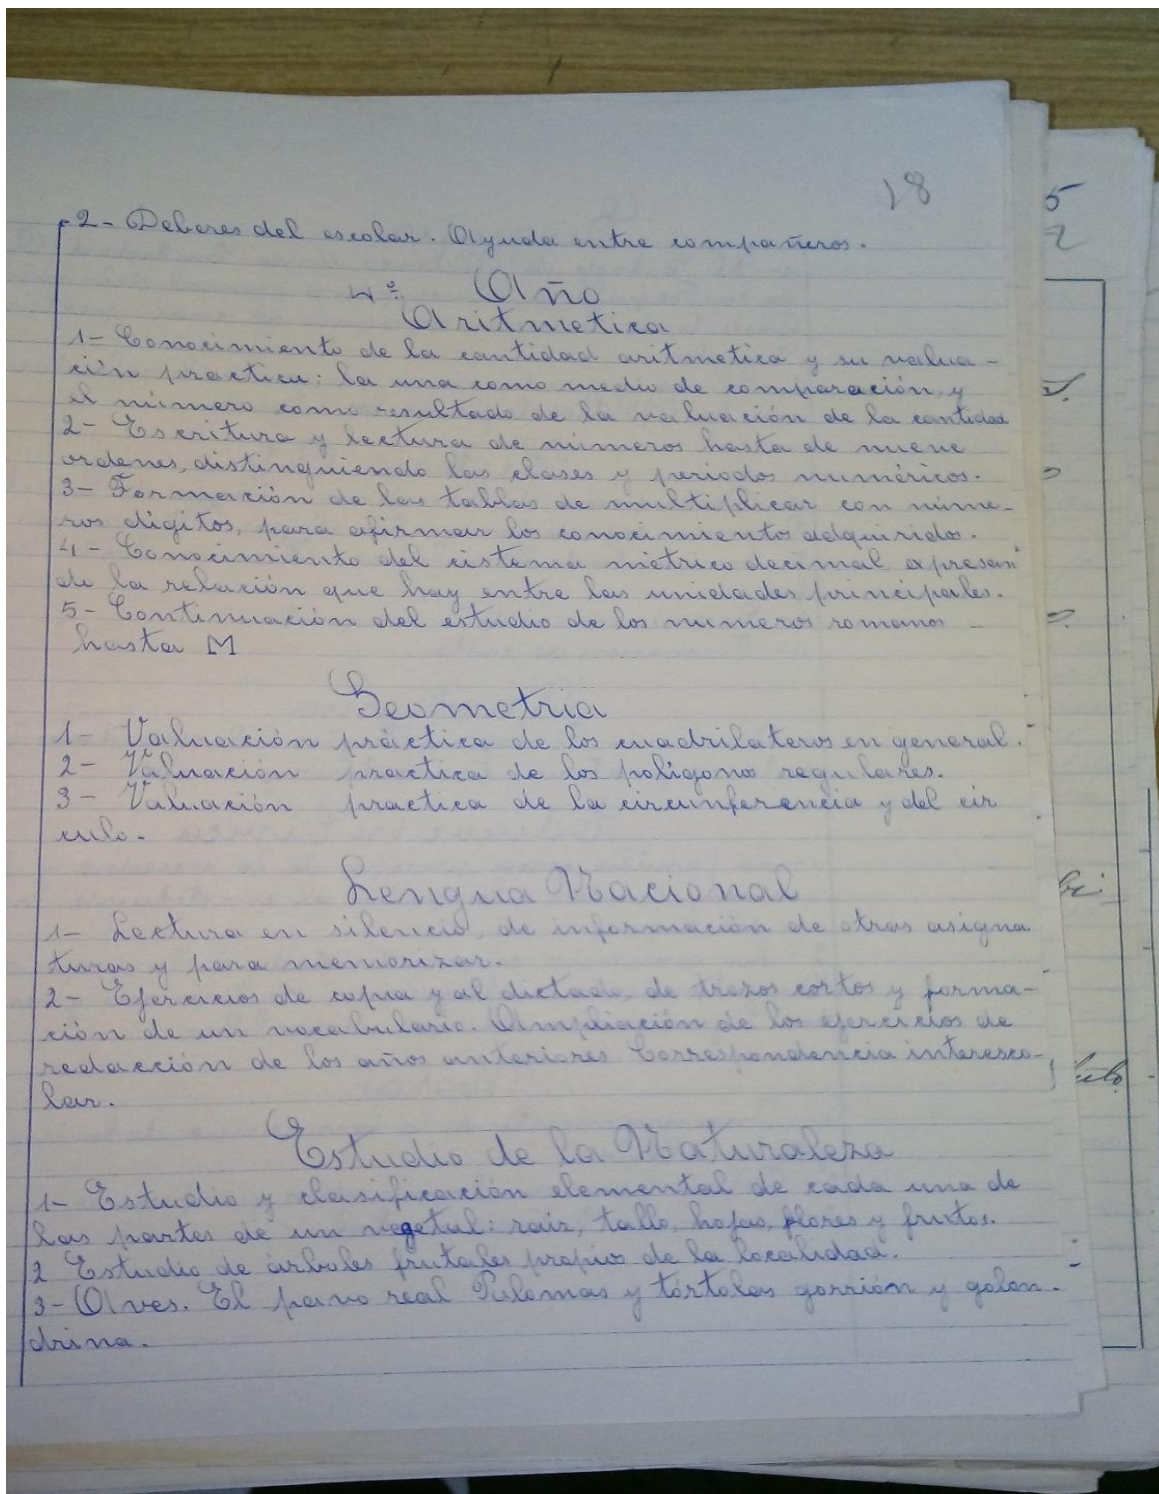 18
2- Deberes del escolar. Ayuda entre compañeros.
4º Año
Aritmetica
1- Conocimiento de la cantidad aritmetica y su valua-
ción practica: la una como medio de comparación, y
el número como resultado de la valuación de la cantidad
2- Escritura y lectura de números hasta de nueve
ordenes, distinguiendo las clases y periodos numéricos.
3- Formación de las tablas de multiplicar con núme-
ros digitos, para afirmar los conocimiento adquiridos.
4- Conocimiento del cistema métrico decimal expresan
de la relación que hay entre las unidades principales.
5- Continuación del estudio de los numeros romanos
hasta M
Geometria
1- Valuación práctica de los cuadrilateros en general.
2- Valuación practica de los polígonos regulares.
3- Valuación practica de la circunferencia y del cir
culo.-
Lengua Nacional
1- Lectura en silencio, de información de otras asigna
turas y para memorizar.
2- Ejercicios de copia y al dictado, de trozos cortos y forma-
ción de un vocabulario. Ampliación de los ejercicios de
redacción de los años anteriores Correspondencia interesco-
lar.
Estudio de la Naturaleza
1- Estudio y clasificación elemental de cada una de
las partes de un vegetal: raiz, tallo, hojas, flores y frutos.
2 Estudio de árboles frutales propios de la localidad.
3- Aves. El pavo real Palomas y tórtolas gorrión y golon-
drina.